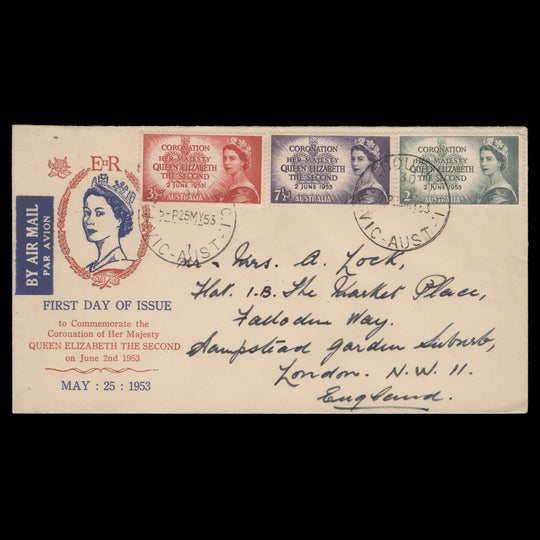 CORONATION
HER MAJESTY
QUEEN ELIZABETH
THE SECOND
2 JUNE 1953
AUSTRALIA
CORONATION
HER MAJESTY
QUEEN ELIZABETH
THE SECOND
2 JUNE 1953
7½
AUSTRALIA
CORONATION
HER MAJESTY
QUEEN ELIZABETH
THE SECOND
2 JUNE 1953
AUSTRALIA
25MY53
VIC-AUST-1
VIC-AUST-1
EIIR
BY AIR MAIL
PAR AVION
FIRST DAY OF ISSUE
to Commemorate the
Coronation of Her Majesty
QUEEN ELIZABETH THE SECOND
on June 2nd 1953
MAY : 25 : 1953
Mrs. A. Lock,
Flat. 1.B. The Market Place,
Falloden Way.
Hampstead Garden Suburb,
London. N.W. 11.
England.